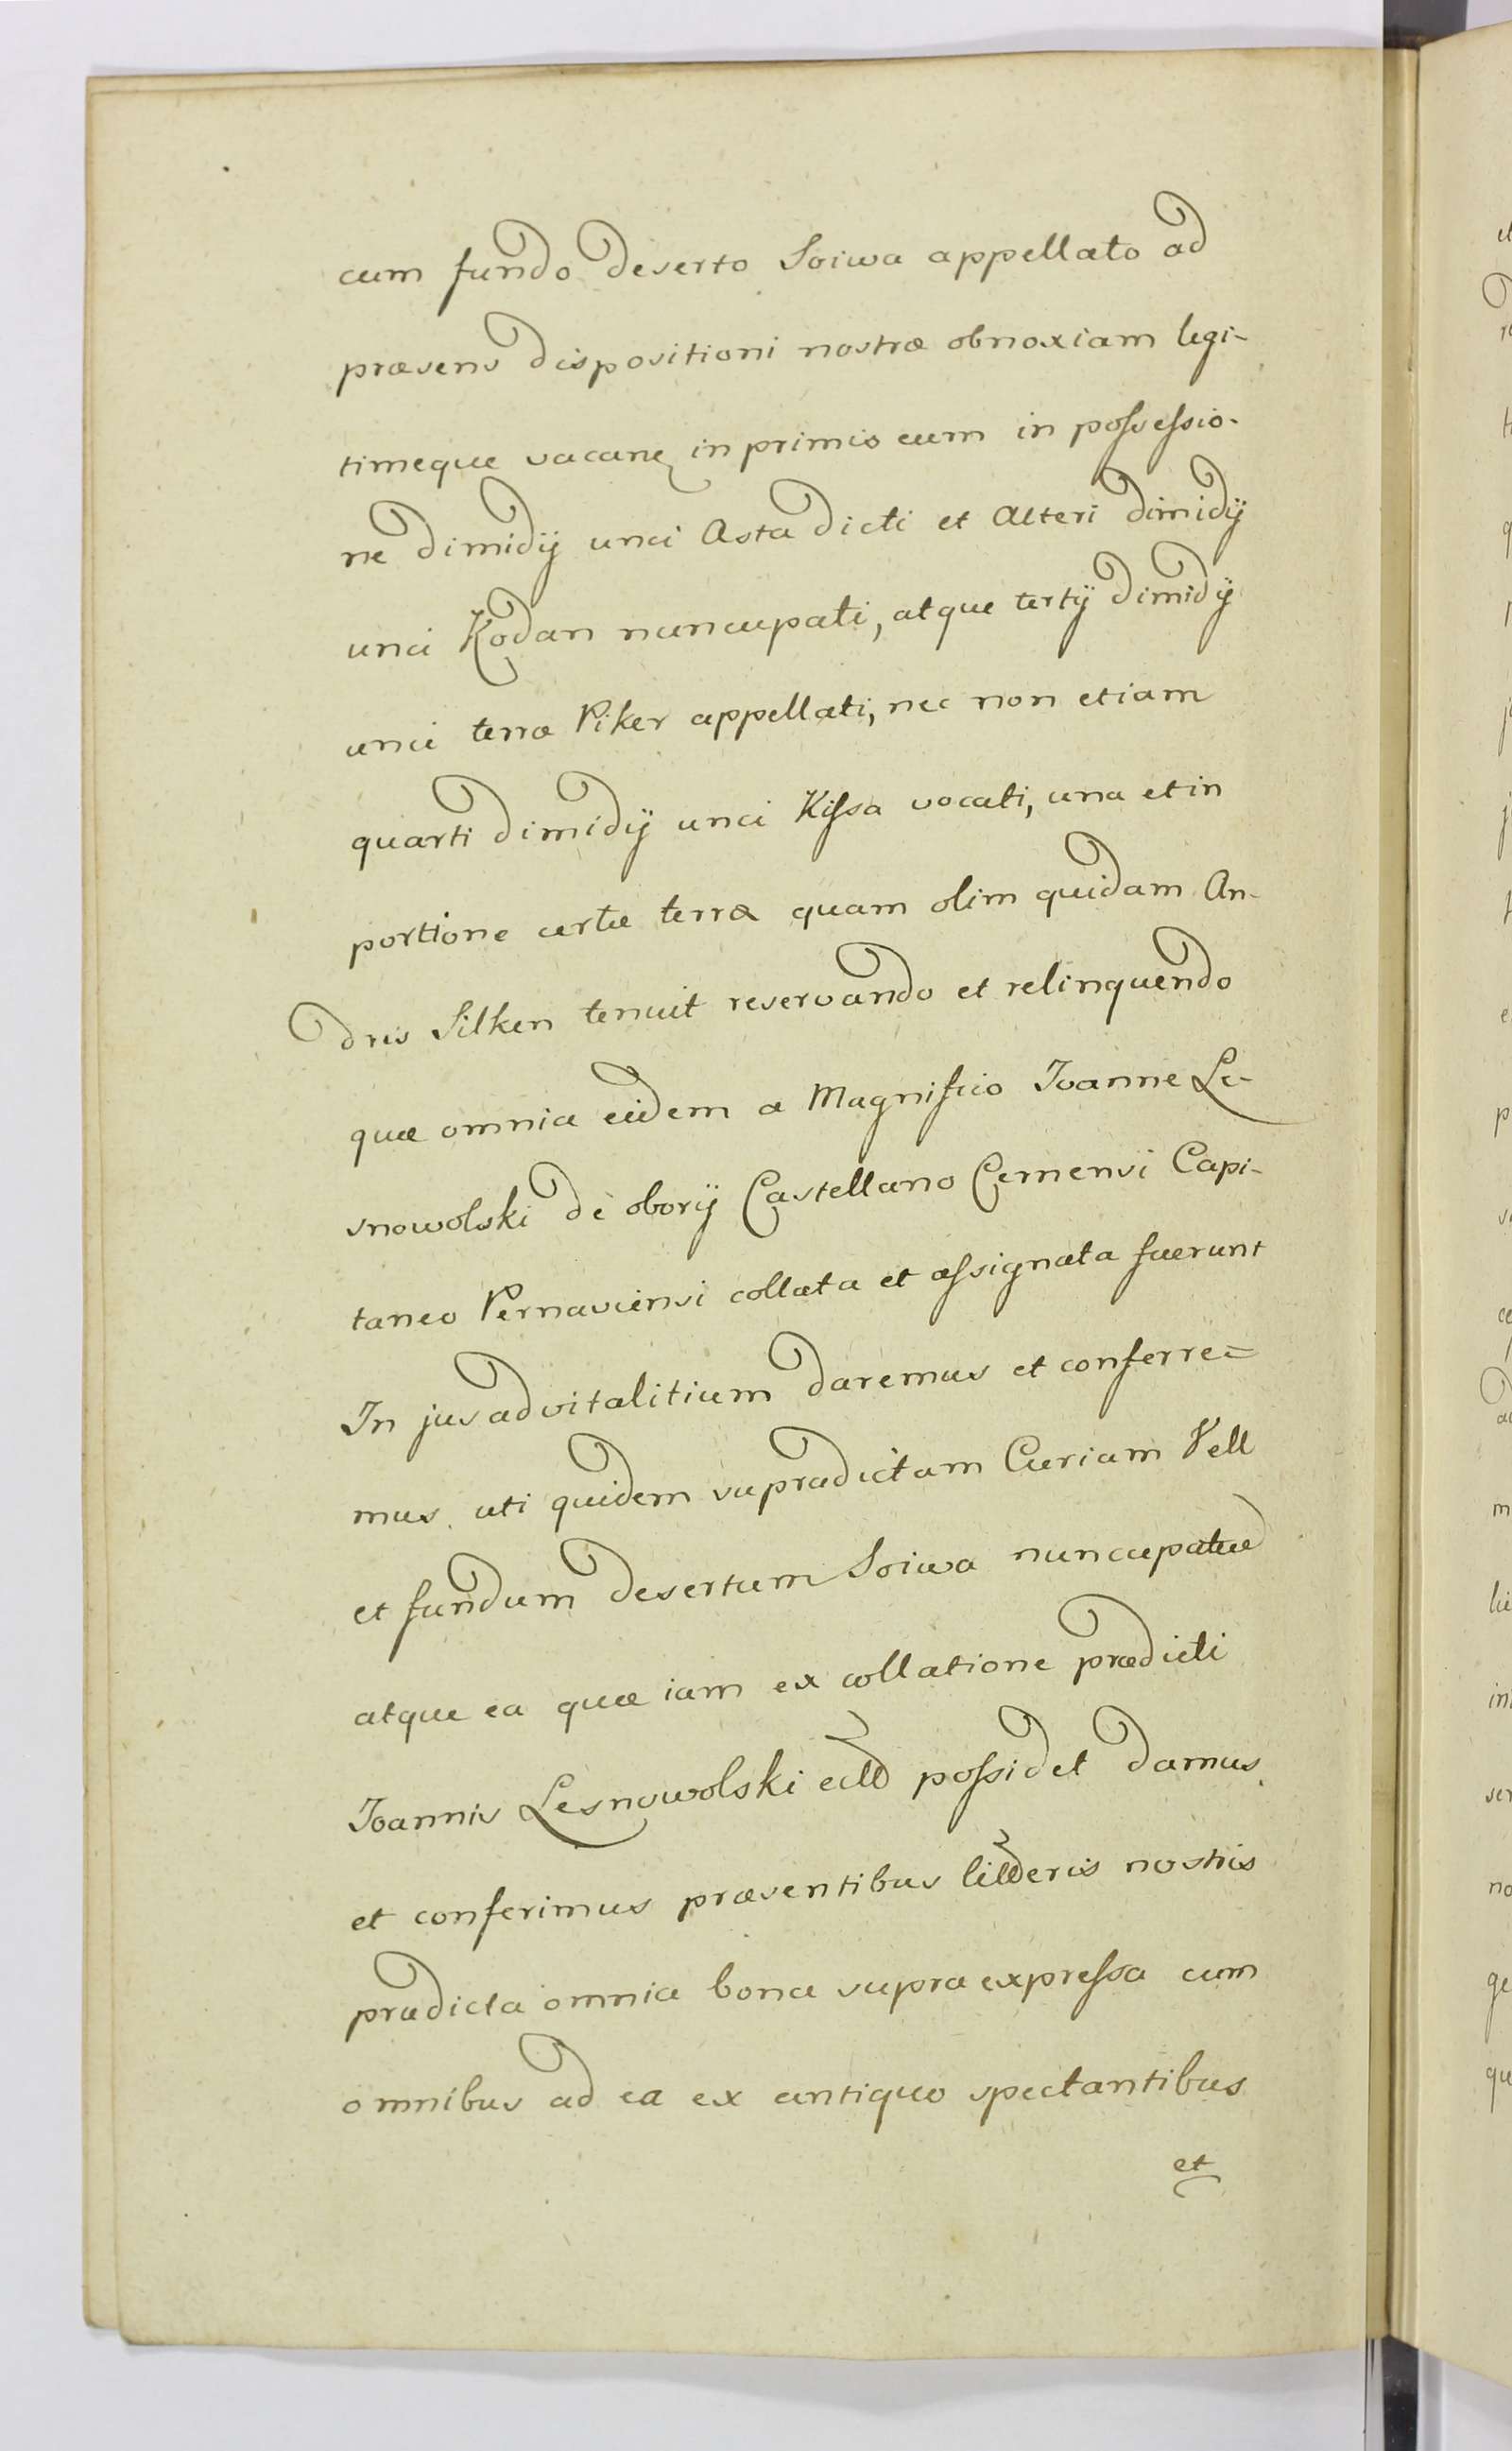 cum fundo deserto Soiwa appellato ad
præsens dispositioni nostræ obnoxiam legi-
timeque vacanę in primis eum in possessio-
ne dimidÿ unci Asta dicti et Alteri dimidÿ
unci Kodan nuncupati, atque tertÿ dimidÿ
unci terræ Piker appellati, nec non etiam
quarti dimidÿ unci Kissa vocati, una et in
portione certæ terræ quam olim quidam An-
dris Silken tenuit reservando et relinquendo
quæ omnia eidem a Magnifico Ioanne Le-
snowolski de oborÿ Castellano Cernensi Capi-
taneo Pernaviensi collata et assignata fuerunt
In jus advitalitium daremus et conferre=
mus. uti quidem supradictam Curiam Vell
et fundum desertum Soiwa nuncupatue
atque ea quæ iam ex collatione prædicti
Ioannis Lesnowolski possidet damus
et conferimus præsentibus nostris
prædicta omnia bona supra expressa cum
omnibus ad ea ex antiquo spectantibus
et